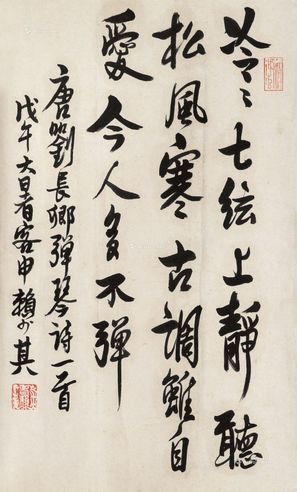 泠〻七絃上靜聽
松風寒古調雖自
愛今人多不彈
唐劉長卿彈琴詩一首
戊午大暑客申賴少其